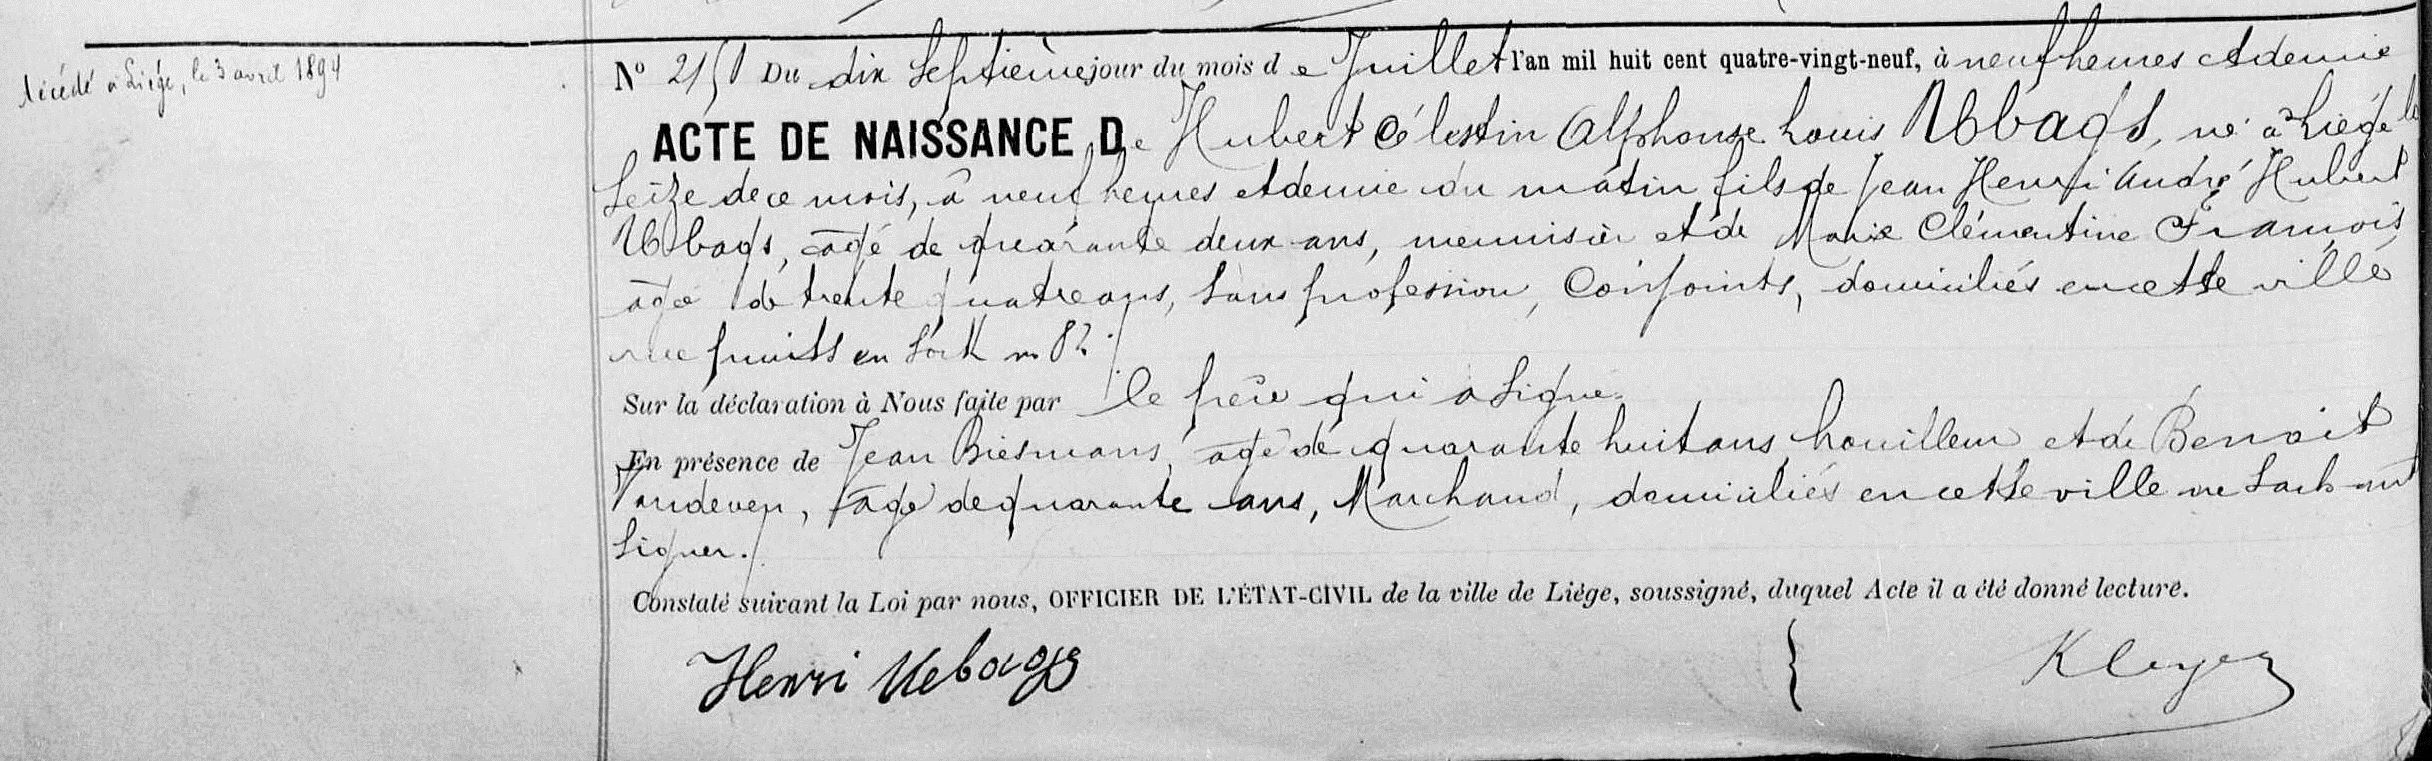 décédé à Liége, le 3 avril 1894
N° 2151 Du dix Septième jour du mois de Juillet l'an mil huit cent quatre-vingt-neuf, à neuf heures et demie
ACTE DE NAISSANCE De Hubert Célestin Alphonse Louis Ubags, né à Liége le
Seize de ce mois, à neuf heures et demie du matin fils de Jean Henri André Hubert
Ubags, âgé de quarante deux ans, menuisier et de Marie Clémentine François,
âgée de trente quatre ans, sans profession, Conjoints, domiciliés en cette ville
rue puits en Sock n° 82 ./
Sur la déclaration à Nous faite par le père qui a Signé.
En présence de Jean Biesmans, âgé de quarante huit ans, houilleur et de Benoit
Vandeven, âgé de quarante ans, Marchand, domiciliés en cette ville ne Sachant
Signer./
Constaté suivant la Loi par nous, OFFICIER DE L'ÉTAT-CIVIL de la ville de Liége, soussigné, duquel Acte il a été donné lecture.
Henri Uebags } Kleyer